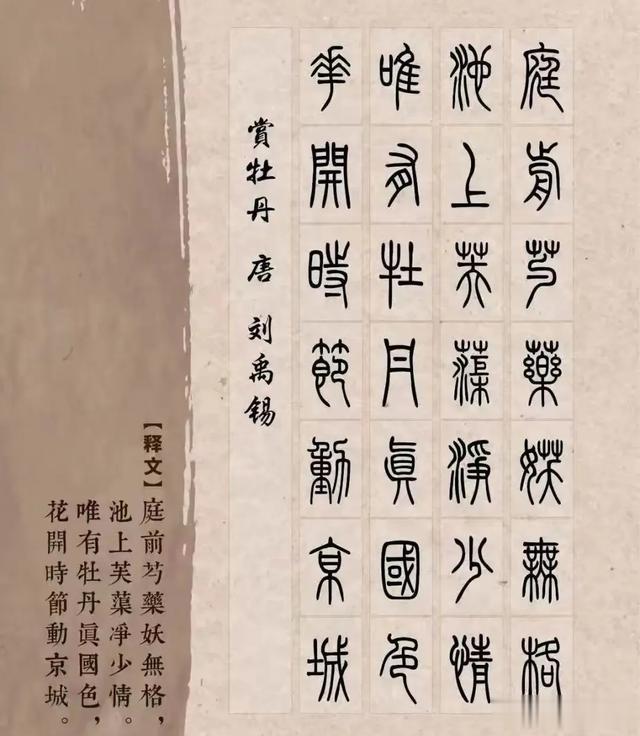 庭前芍藥妖無格
池上芙蕖淨少情
唯有牡丹眞國色
華開時節動京城
賞牡丹 唐 刘禹锡
【释文】庭前芍藥妖無格，
池上芙蕖凈少情。
唯有牡丹眞國色，
花開時節動京城。